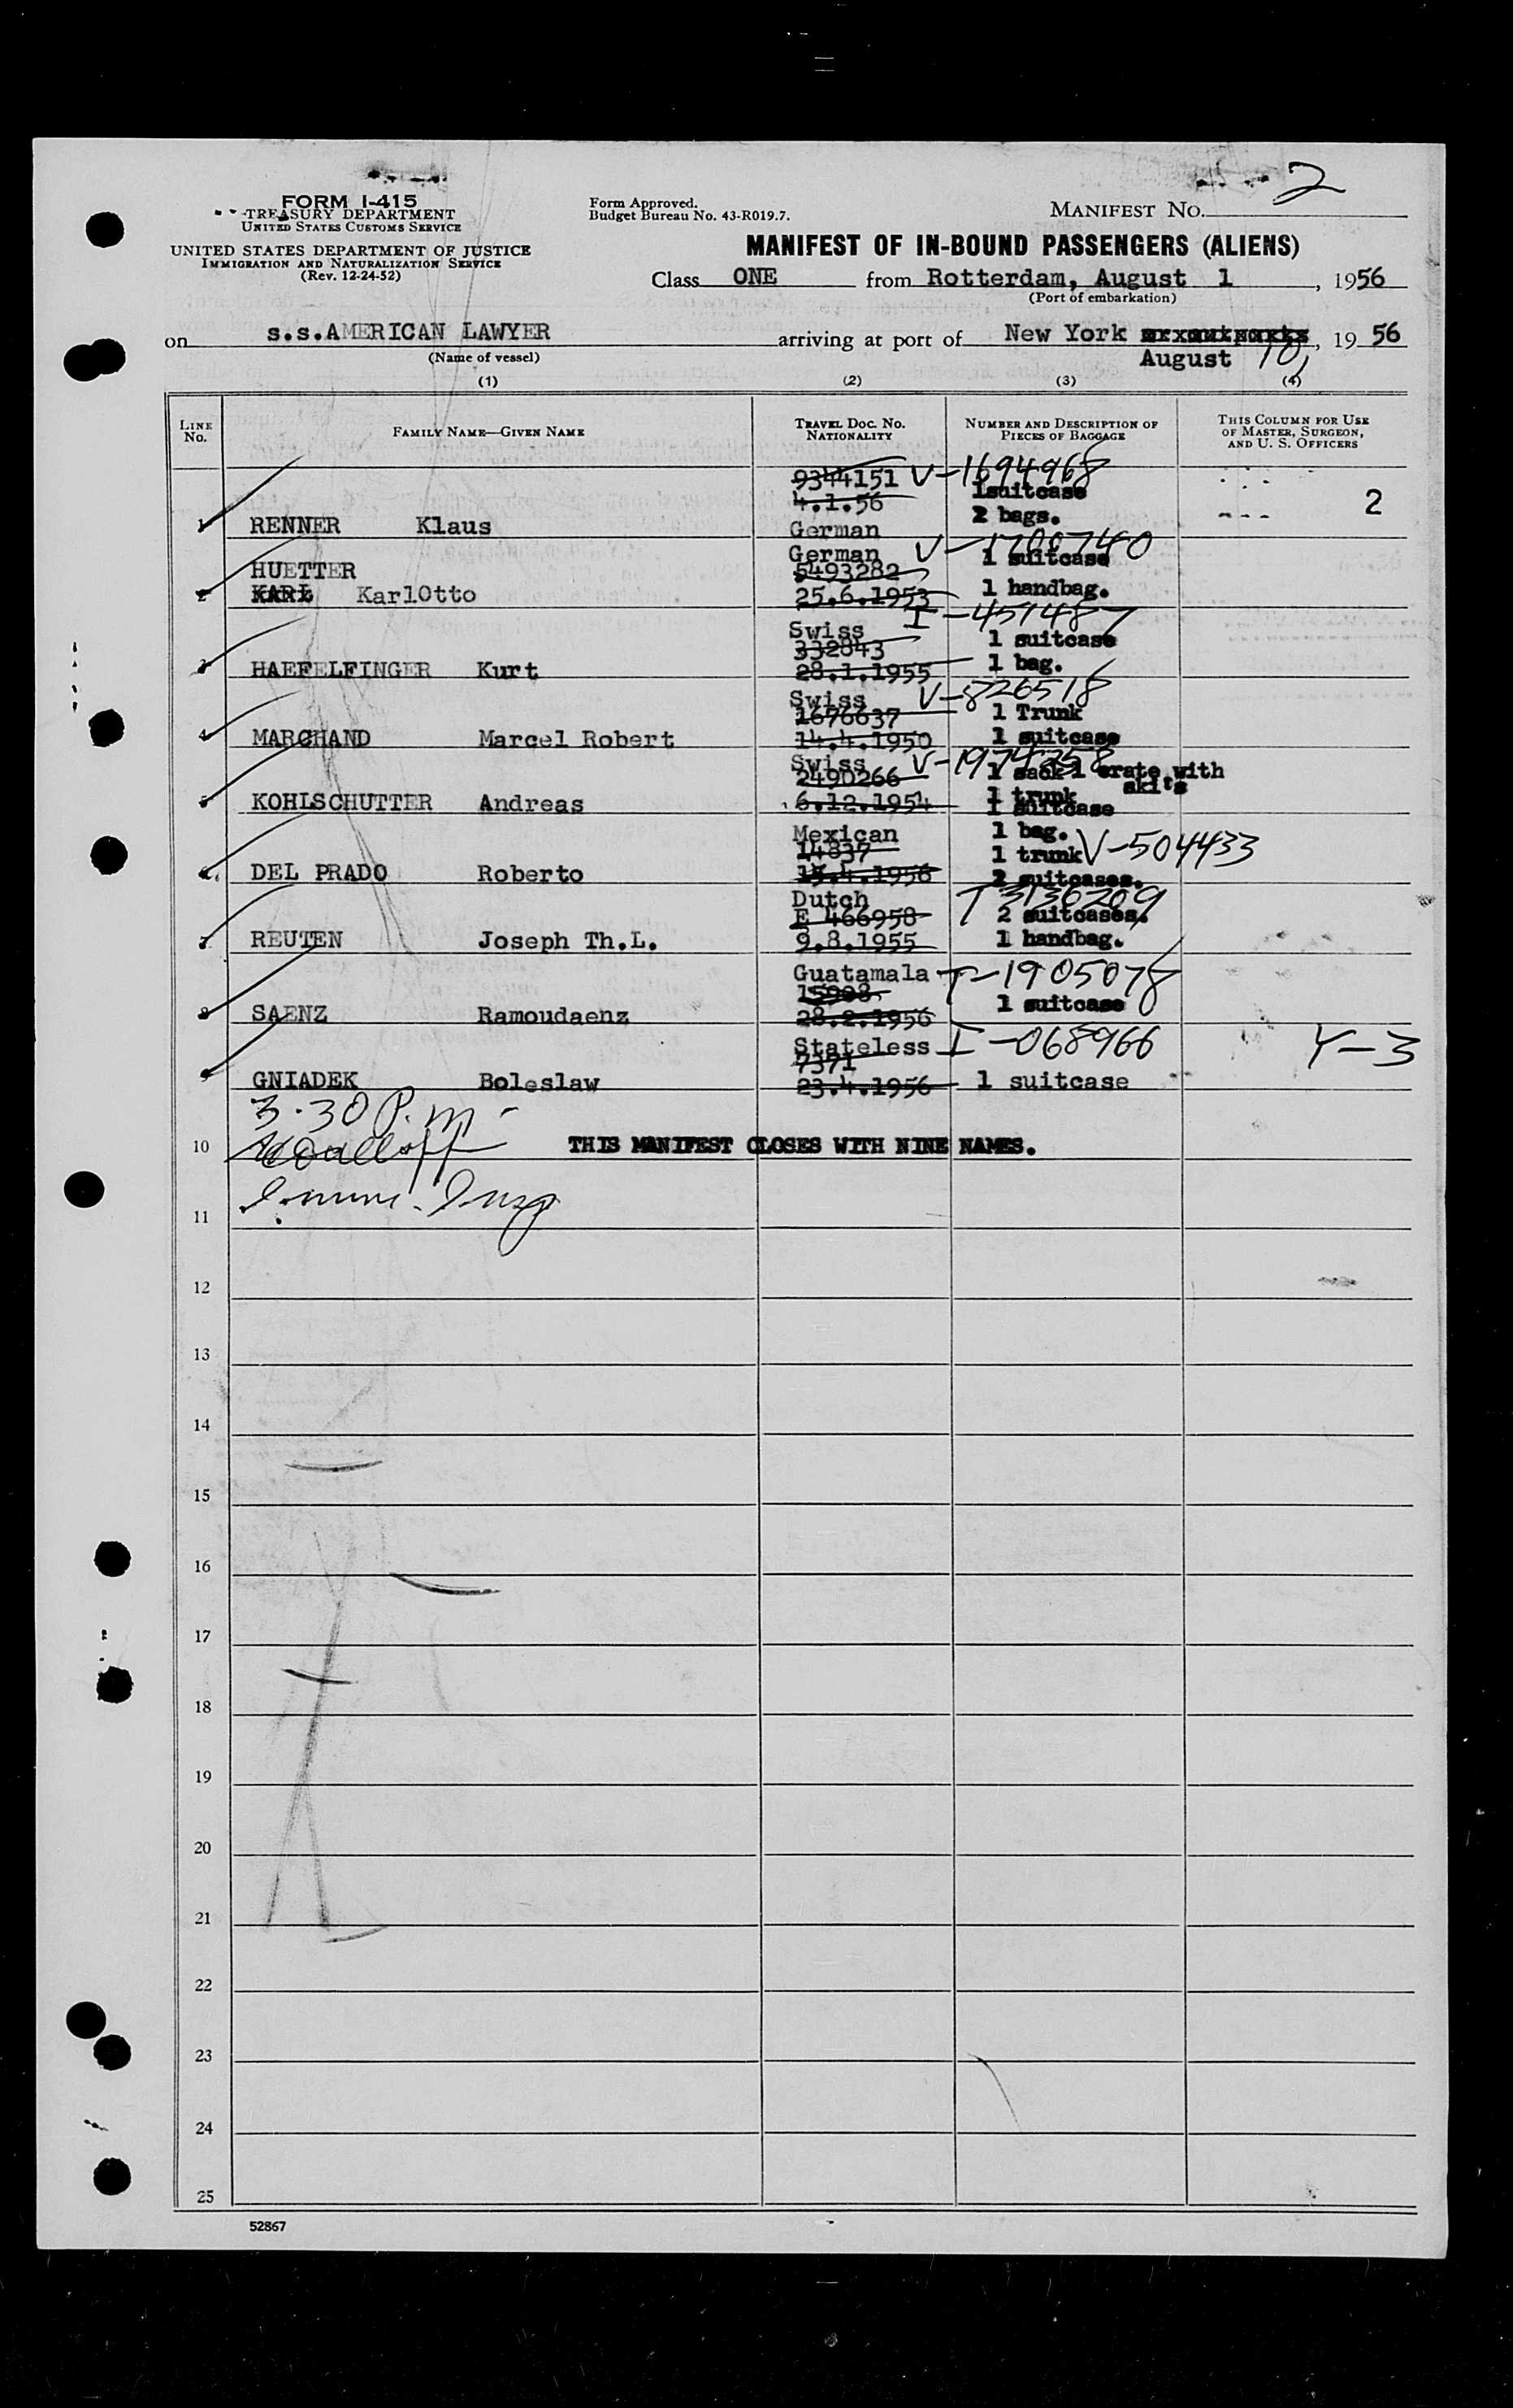 2
FORM I-415
TREASURY DEPARTMENT
UNITED STATES CUSTOMS SERVICE
UNITED STATES DEPARTMENT OF JUSTICE
IMMIGRATION AND NATURALIZATION SERVICE
(Rev. 12-24-52)
Form Approved.
Budget Bureau No. 43-R019.7.
MANIFEST NO.
MANIFEST OF IN-BOUND PASSENGERS (ALIENS)
Class ONE from Rotterdam, August 1, 1956
(Port of embarkation)
on s.s.AMERICAN LAWYER arriving at port of New York, 19 56
(Name of vessel) August 10,
(1) (2) (3) (4)
LINE No. FAMILY NAME—GIVEN NAME TRAVEL DOC. NO. NATIONALITY NUMBER AND DESCRIPTION OF PIECES OF BAGGAGE THIS COLUMN FOR USE OF MASTER, SURGEON, AND U. S. OFFICERS
9344151 V-1694968
4.1.56 1suitcase
2 bags. 2
1 RENNER Klaus German
German V-1700740
HUETTER 5493282 1 suitcase
2 KARL KarlOtto 25.6.1953 1 handbag.
Swiss I-451487
332843 1 suitcase
3 HAEFELFINGER Kurt 28.1.1955 1 bag.
Swiss V-826518
1676637 1 Trunk
4 MARCHAND Marcel Robert 14.4.1950 1 suitcase
Swiss
2490266 1 sack 1 crate with
1 trunk skits
5 KOHLSCHUTTER Andreas 6.12.1954 1 suitcase
Mexican 1 bag.
14837 1 trunk V-504433
6. DEL PRADO Roberto .4.1956 2 suitcases.
Dutch T 3136209
E 466958 2 suitcases.
7 REUTEN Joseph Th.L. 9.8.1955 1 handbag.
Guatamala T-1905078
15908 1 suitcase
8 SAENZ Ramoudaenz 28.2.1956
Stateless I-068966 Y-3
7371
9 GNIADEK Boleslaw 23.4.1956 1 suitcase
3.30 P.m -
10 THIS MANIFEST CLOSES WITH NINE NAMES.
Immi. Insp
11
12
13
14
15
16
17
18
19
20
21
22
23
24
25
52867